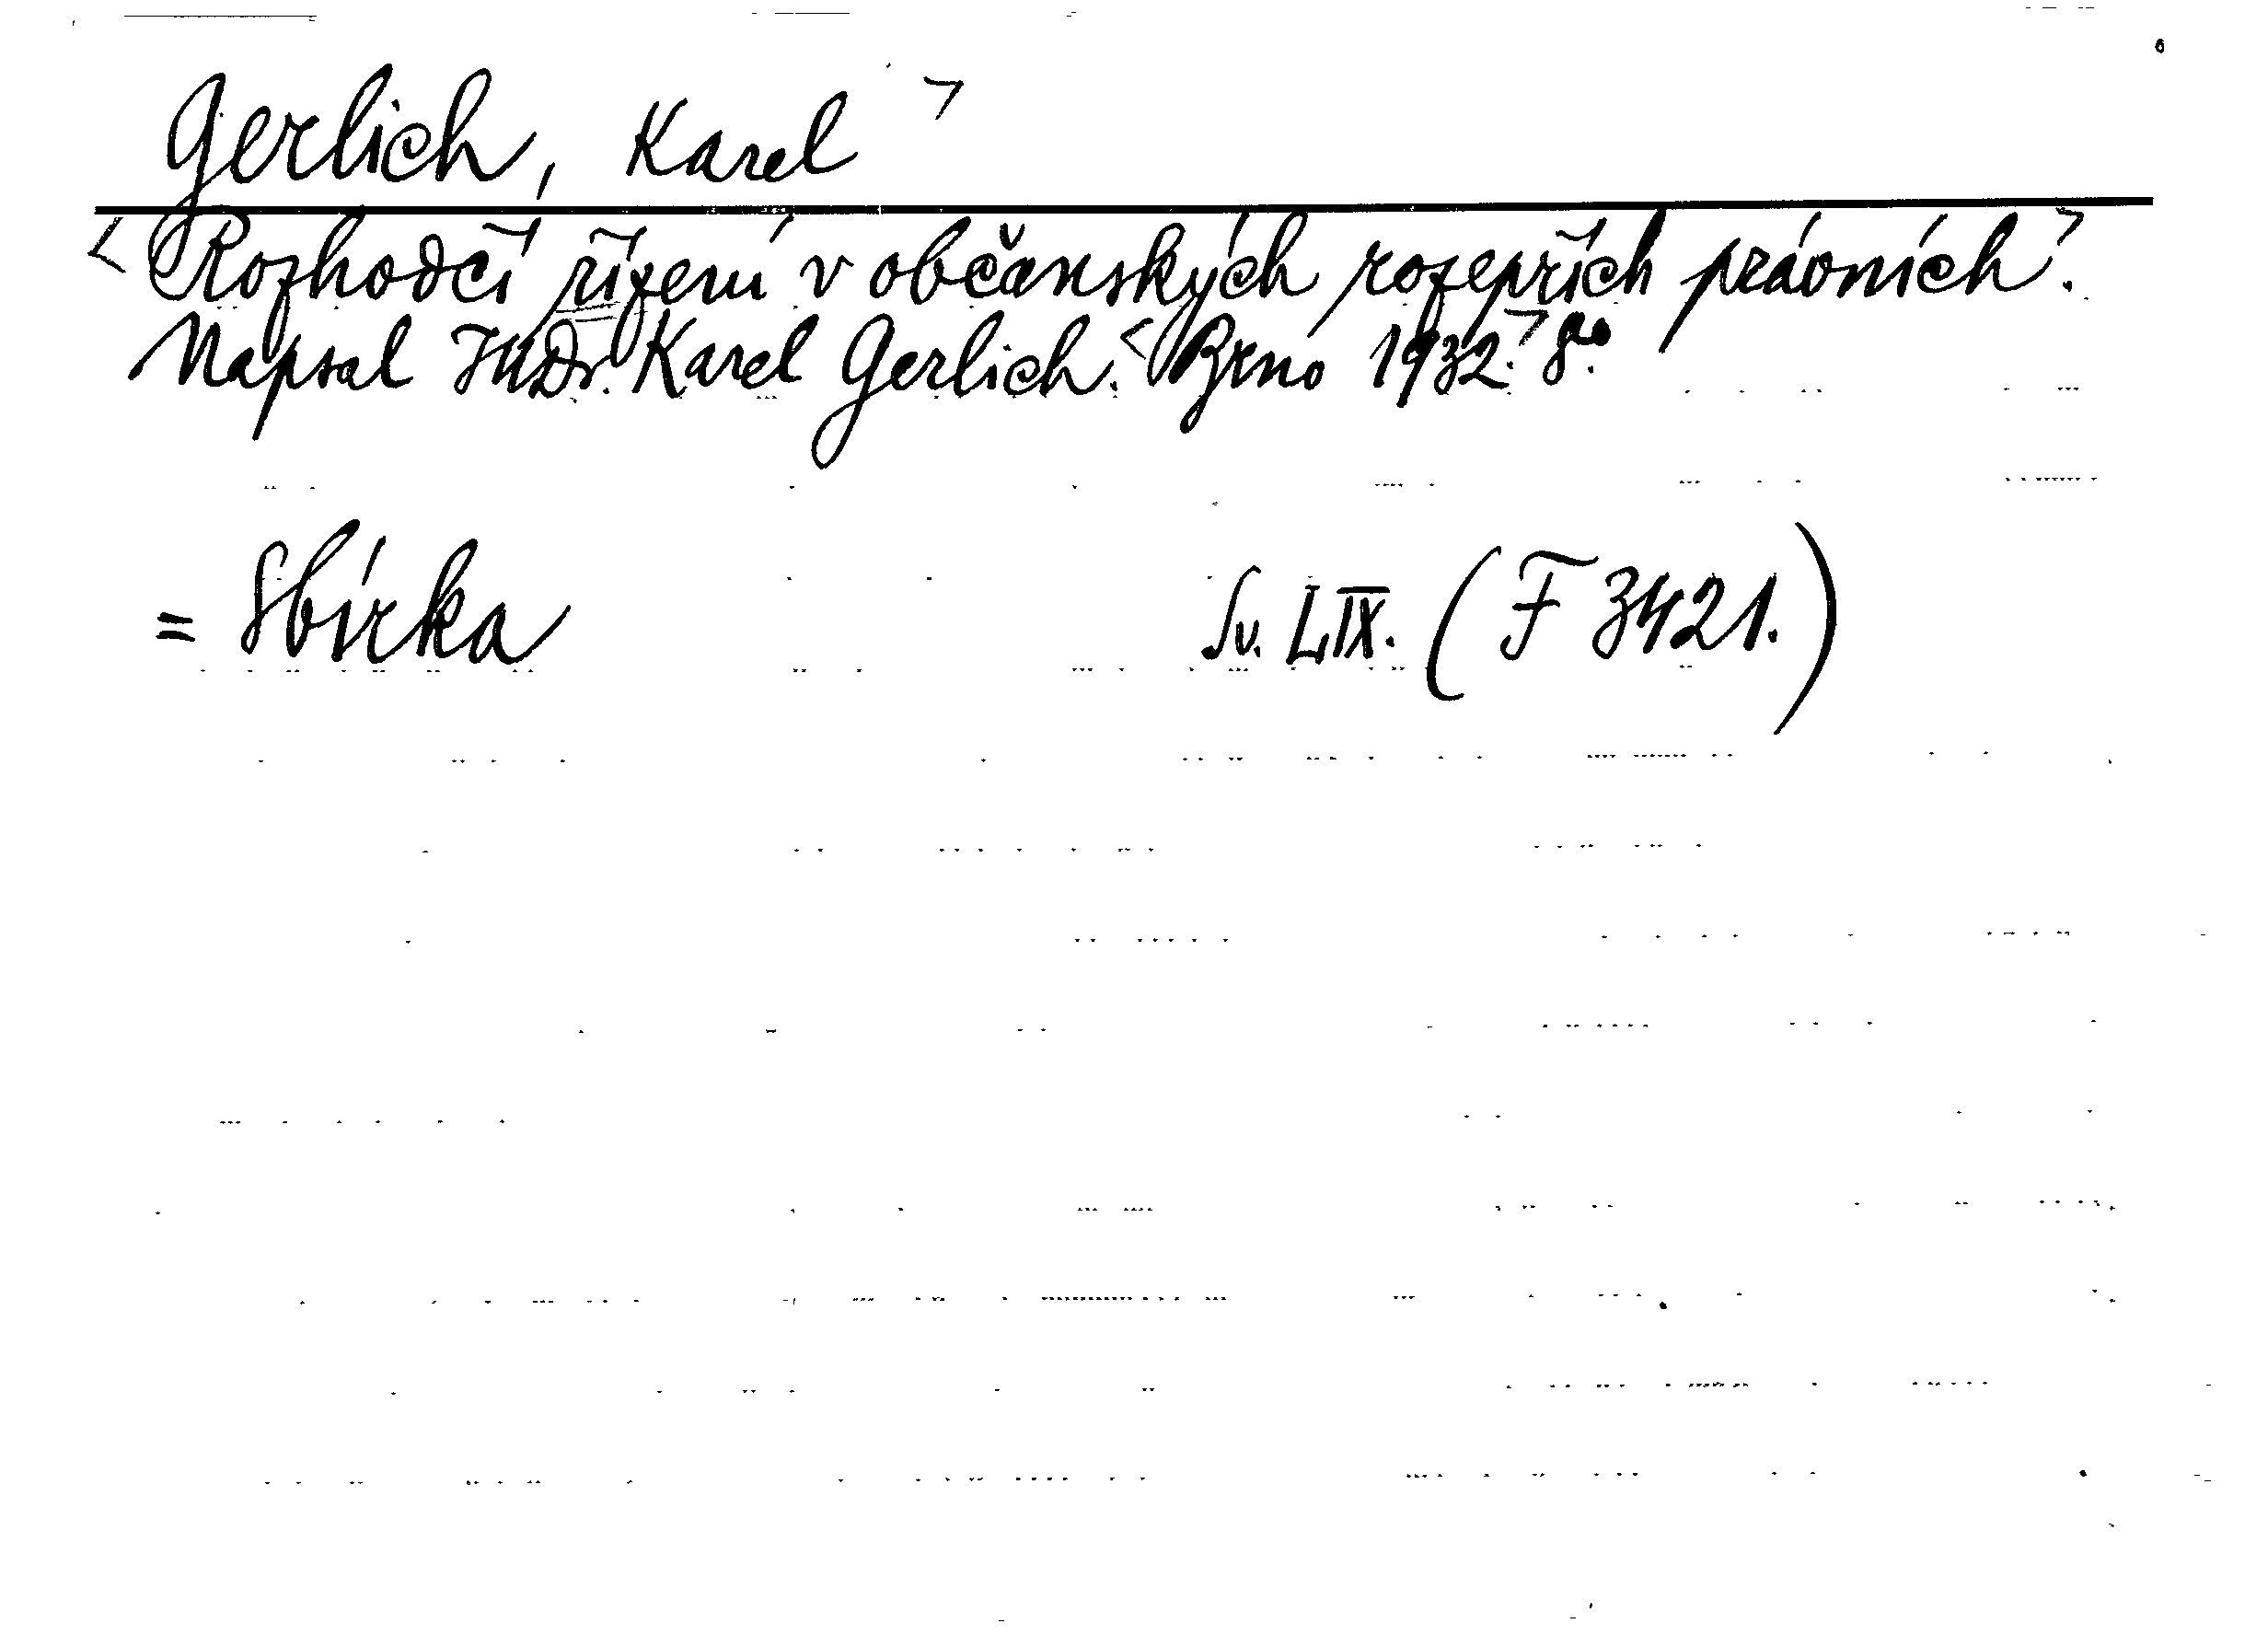 Gerlich, Karel >
< Rozhodčí řízení v občanských rozepřích právních >.
Napsal JUDr. Karel Gerlich. < Brno 1932. > 8vo.
= Sbírka Sv. LIX. (F 3421.)